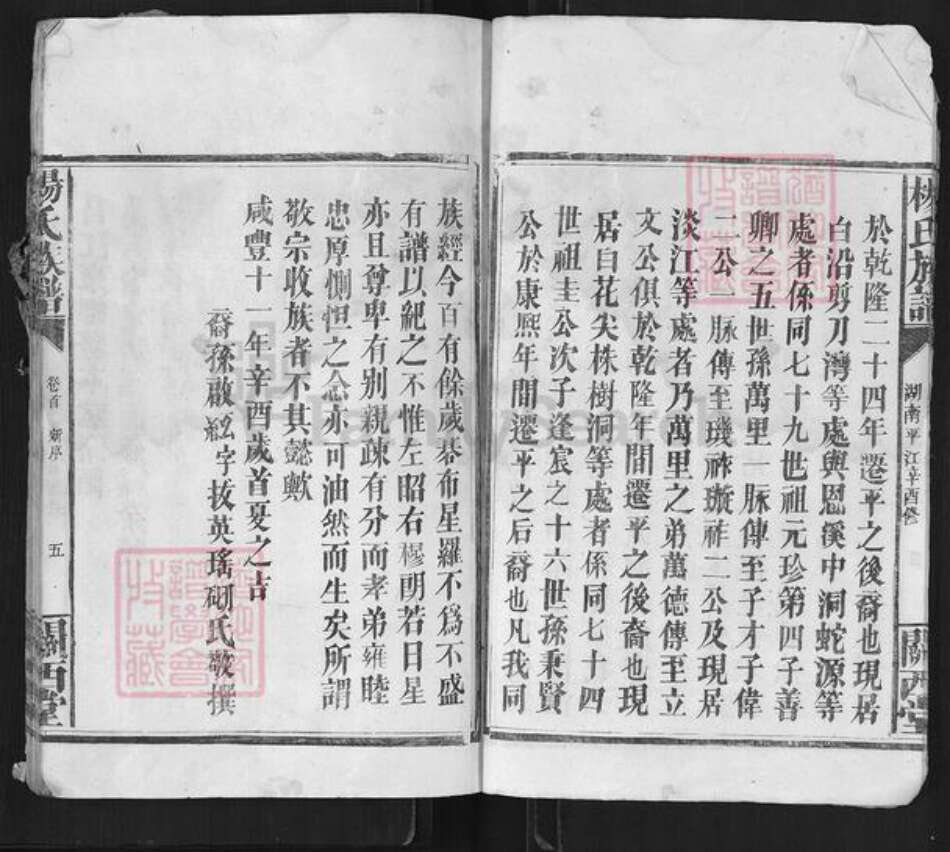 楊氏族譜
湖南平江辛酉修
關西堂
於乾隆二十四年遷平之後裔也現居
白沿剪刀灣等處與恩溪中洞蛇源等
處者係同七十九世祖元珍第四子善
卿之五世孫萬里一脉傳至子才子偉
二公一脉傳至璣祚璇祚二公及現居
淡江等處者乃萬里之弟萬德傳至立
文公俱於乾隆年間遷平之後裔也現
居自花尖株樹洞等處者係同七十四
世祖圭公次子逢宸之十六世孫秉賢
公於康熙年間遷平之后裔也凡我同
族經今百有餘歲碁布星羅不為不盛
有譜以紀之不惟左昭右穆朗若日星
亦且尊卑有别親疎有分而孝弟雍睦
忠厚惻怛之念亦可油然而生矣所謂
敬宗收族者不其懿歟
咸豐十一年辛酉歲首夏之吉
裔孫啟紭字拔英瑤砌氏敬撰
楊氏族譜
卷首 新序
五
關西堂